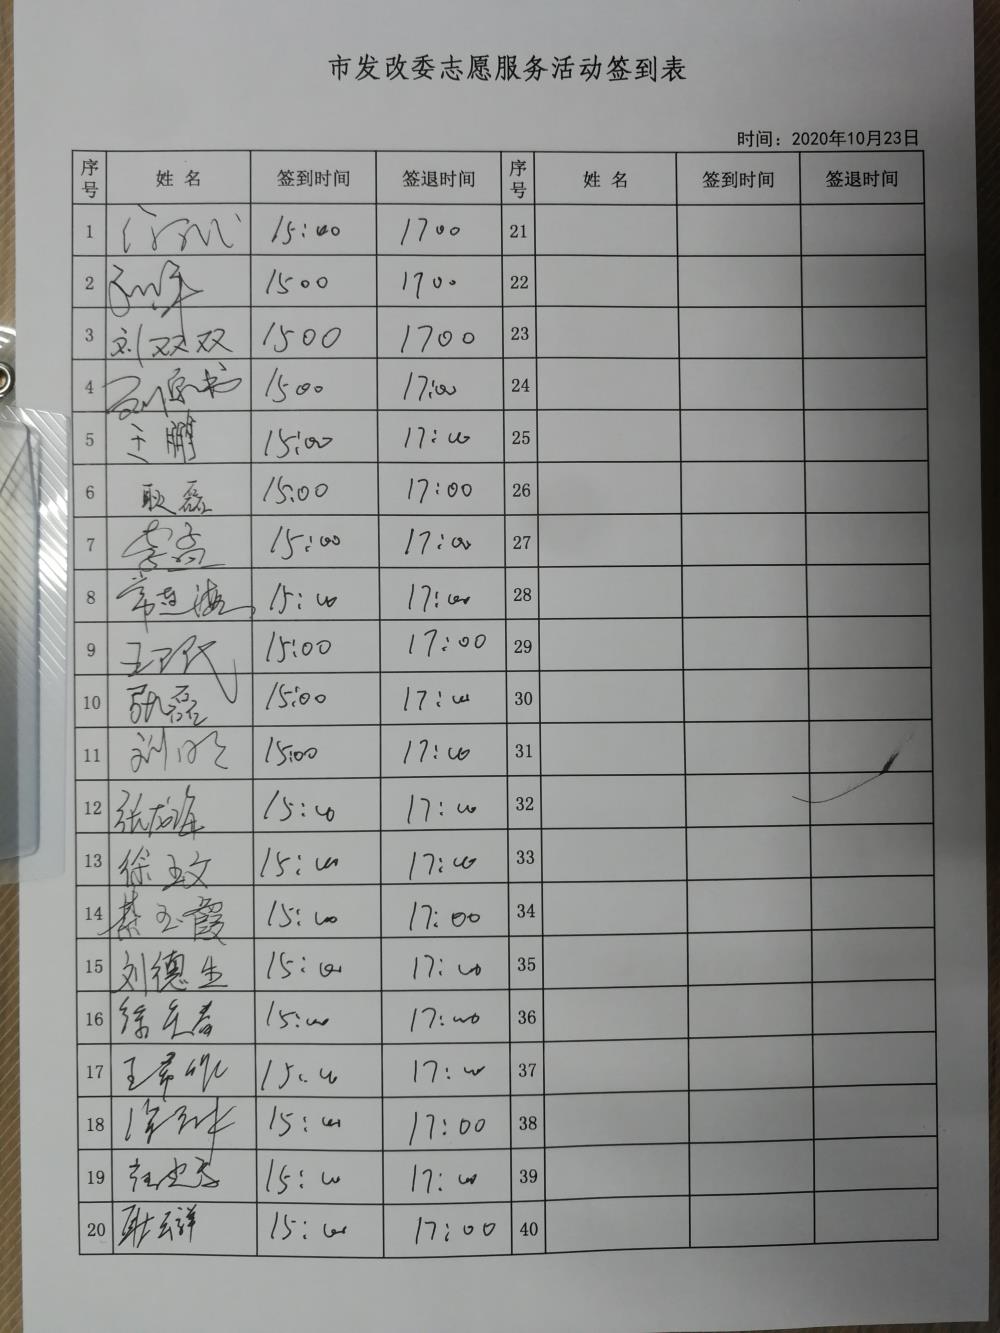 市发改委志愿服务活动签到表
时间：2020年10月23日
序号 姓名 签到时间 签退时间 序号 姓名 签到时间 签退时间
1 15:00 1700 21
2 1500 1700 22
3 刘双双 1500 1700 23
4 1500 17:00 24
5 王鹏 15:00 17:00 25
6 耿磊 15:00 17:00 26
7 李磊 15:00 17:00 27
8 15:00 17:00 28
9 15:00 17:00 29
10 张磊 15:00 17:00 30
11 刘明 15:00 17:00 31
12 张海 15:00 17:00 32
13 徐玉文 15:00 17:00 33
14 綦玉霞 15:00 17:00 34
15 刘德生 15:00 17:00 35
16 15:00 17:00 36
17 15:00 17:00 37
18 15:00 17:00 38
19 15:00 17:00 39
20 15:00 17:00 40